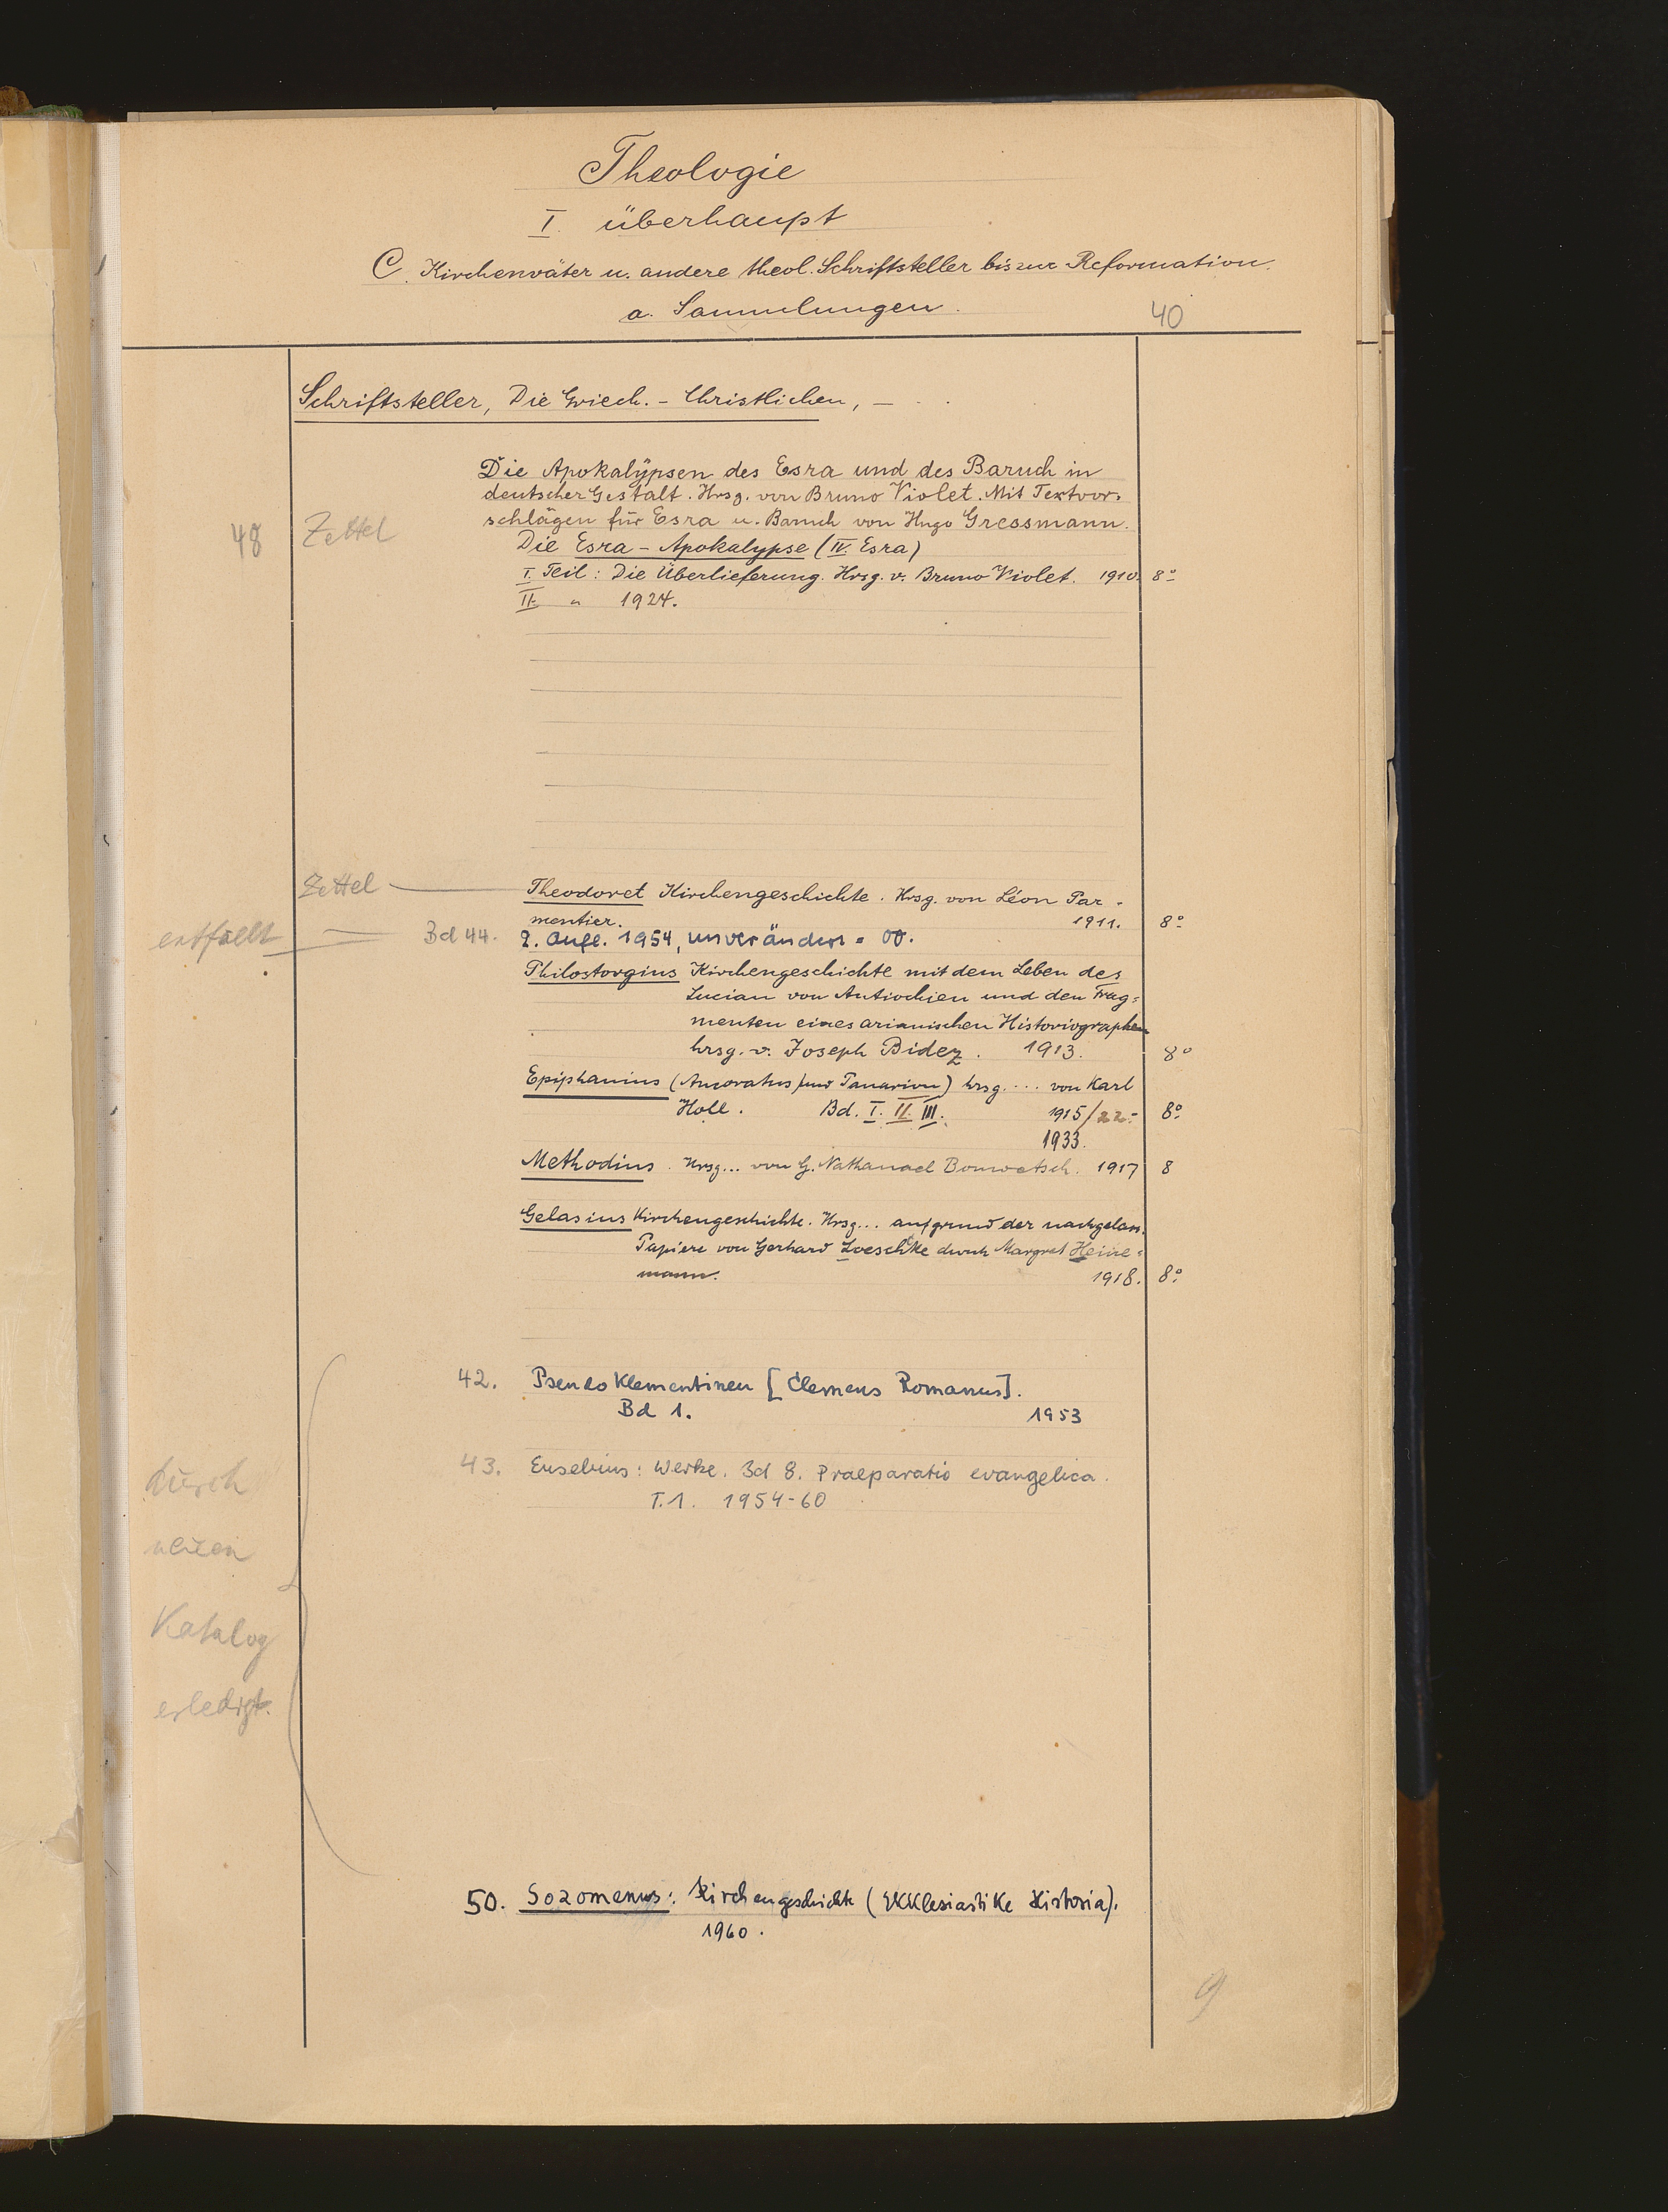 Theologie
I. überhaupt
C. Kirchenväter u. andere theol. Schriftsteller bis zur Reformation.
a. Sammlungen.
40
Schriftsteller, Die Griech.-Christlichen, —
Die Apokalypsen des Esra und des Baruch in
deutscher Gestalt. Hrsg. von Bruno Violet. Mit Textvor-
48 Zettel schlägen für Esra u. Baruch von Hugo Gressmann.
Die Esra-Apokalypse (IV. Esra)
I. Teil: Die Überlieferung. Hrsg. v. Bruno Violet. 1910. 8°
II. " 1924.
Zettel — Theodoret Kirchengeschichte. Hrsg. von Léon Par-
mentier. 1911. 8°
entfällt — Bd 44. 2. Aufl. 1954, unverändert =
Philostorgius Kirchengeschichte mit dem Leben des
Lucian von Antiochien und den Frag=
menten eines arianischen Historiographen
hrsg. v. Joseph Bidez. 1913. 8°
Epiphanius (Ancoratus und Panarion) hrsg. ... von Karl
Holl. Bd. I. II. III. 1915/22-
8°
1933.
Methodius. Hrsg... von G. Nathanael Bonwetsch. 1917 8
Gelasius Kirchengeschichte. Hrsg... aufgrund der nachgelass.
Papiere von Gerhard Loeschke durch Margret Heine=
mann. 1918. 8°
42. Pseudoklementinen [Clemens Romanus].
Bd 1. 1953
43. Eusebius: Werke. Bd 8. Praeparatio evangelica.
T.1. 1954-60
durch
neuen
Katalog
erledigt.
50. Sozomenus: Kirchengeschichte (Ekklesiastike Historia).
1960.
9